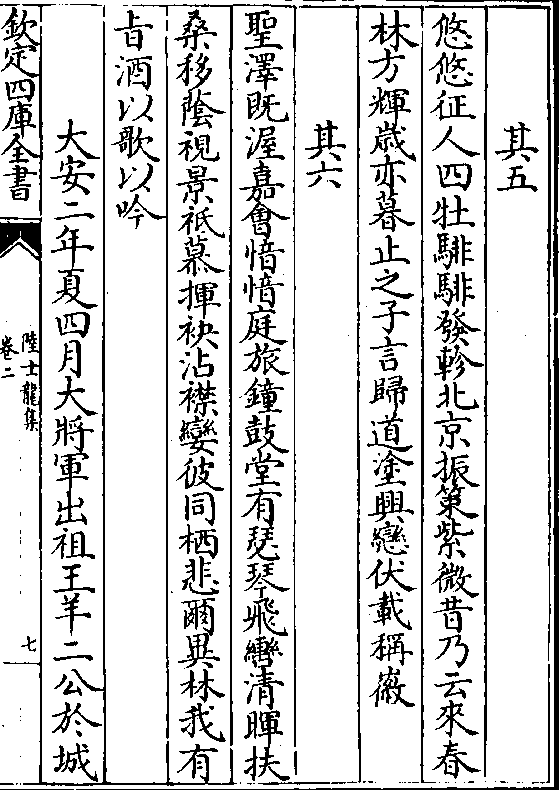 其五
悠悠征人四牡騑騑發軫北京振策紫微昔乃云來春
林方輝嵗亦暮止之子言歸道塗興戀伏載稱㣲
其六
聖澤既渥嘉會愔愔庭旅鐘鼓堂有瑟琴飛轡清暉扶
桑移蔭視景祇慕揮袂沾襟孌彼同栖悲爾異林我有
㫖酒以歌以吟
大安二年夏四月大將軍出祖王羊二公於城
欽定四庫全書
陸士龍集
卷二
七